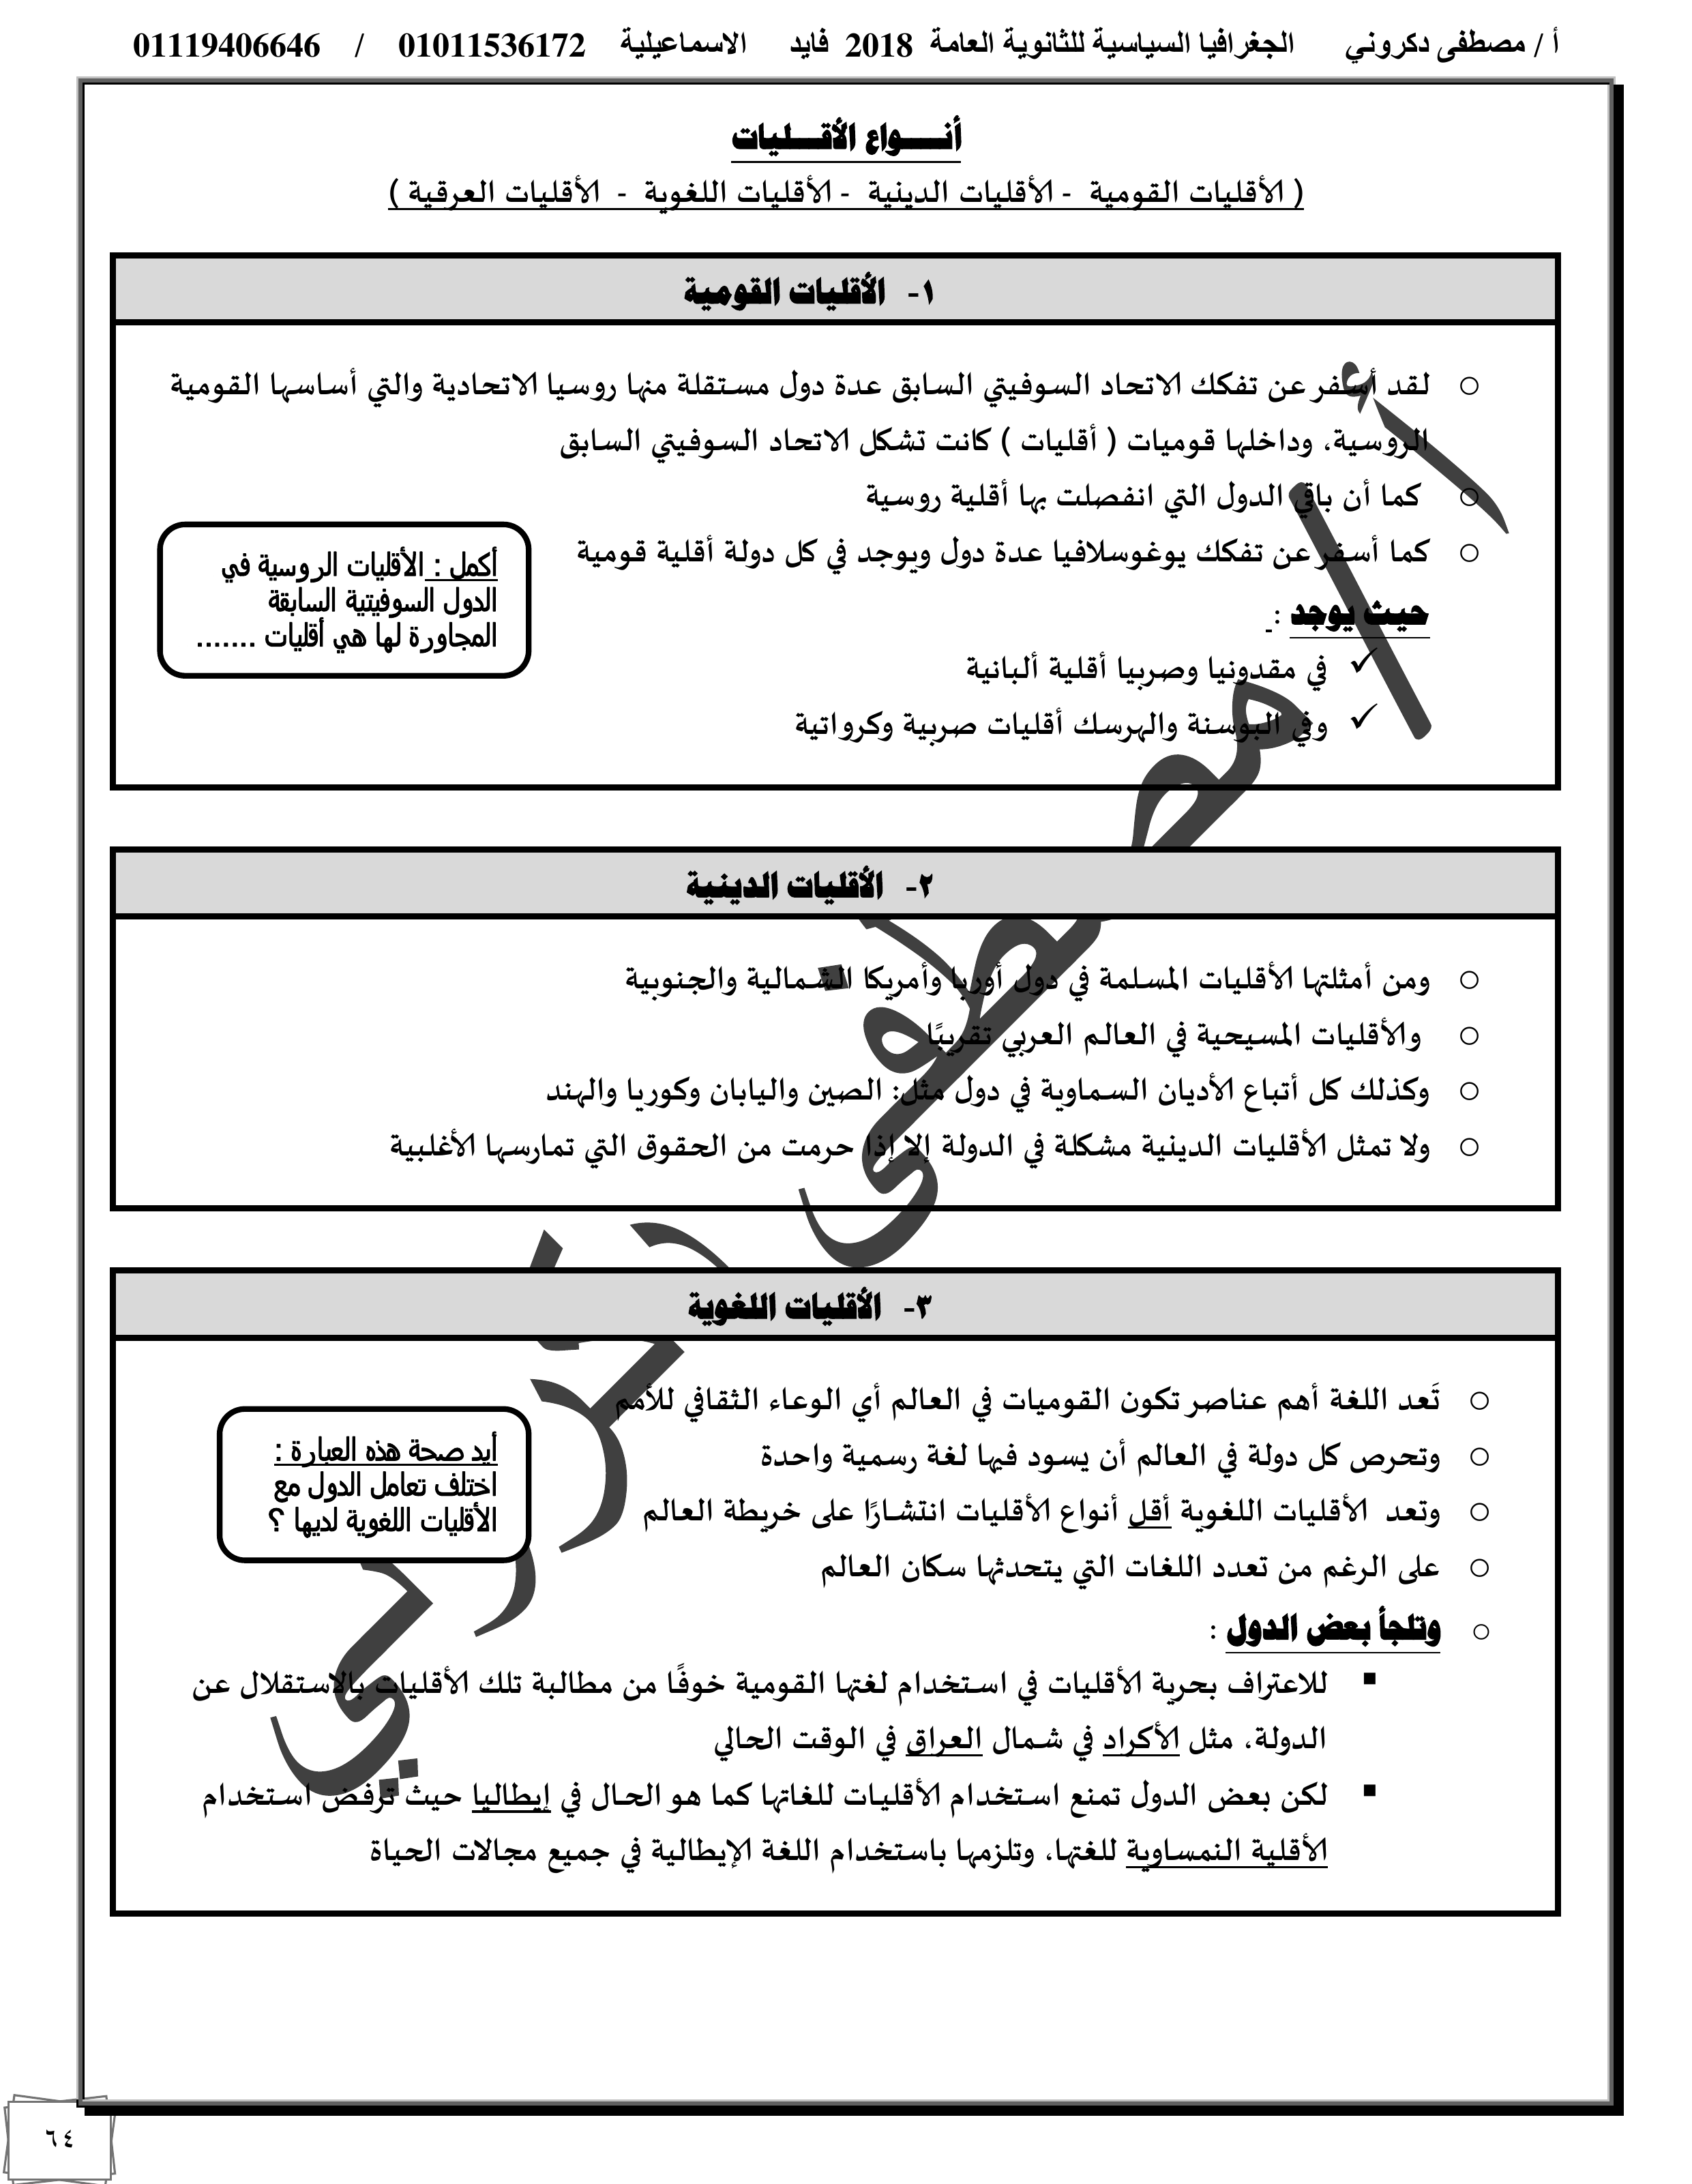 أ / مصطفى دكروني الجغرافيا السياسية للثانوية العامة 2018 فايد الاسماعيلية 01011536172 / 01119406646
أنـــواع الأقـــليات
( الأقليات القومية - الأقليات الدينية - الأقليات اللغوية - الأقليات العرقية )
١- الأقليات القومية
○ لقد أسفر عن تفكك الاتحاد السوفيتي السابق عدة دول مستقلة منها روسيا الاتحادية والتي أساسها القومية
الروسية، وداخلها قوميات ( أقليات ) كانت تشكل الاتحاد السوفيتي السابق
○ كما أن باقي الدول التي انفصلت بها أقلية روسية
○ كما أسفر عن تفكك يوغوسلافيا عدة دول ويوجد في كل دولة أقلية قومية
حيث يوجد :
✓ في مقدونيا وصربيا أقلية ألبانية
✓ وفي البوسنة والهرسك أقليات صربية وكرواتية
أكمل : الأقليات الروسية في
الدول السوفيتية السابقة
المجاورة لها هي أقليات .......
٢- الأقليات الدينية
○ ومن أمثلتها الأقليات المسلمة في دول أوربا وأمريكا الشمالية والجنوبية
○ والأقليات المسيحية في العالم العربي تقريبًا
○ وكذلك كل أتباع الأديان السماوية في دول مثل: الصين واليابان وكوريا والهند
○ ولا تمثل الأقليات الدينية مشكلة في الدولة إلا إذا حرمت من الحقوق التي تمارسها الأغلبية
٣- الأقليات اللغوية
○ تَعد اللغة أهم عناصر تكون القوميات في العالم أي الوعاء الثقافي للأمم
○ وتحرص كل دولة في العالم أن يسود فيها لغة رسمية واحدة
○ وتعد الأقليات اللغوية أقل أنواع الأقليات انتشارًا على خريطة العالم
○ على الرغم من تعدد اللغات التي يتحدثها سكان العالم
○ وتلجأ بعض الدول :
▪ للاعتراف بحرية الأقليات في استخدام لغتها القومية خوفًا من مطالبة تلك الأقليات بالاستقلال عن
الدولة، مثل الأكراد في شمال العراق في الوقت الحالي
▪ لكن بعض الدول تمنع استخدام الأقليات للغاتها كما هو الحال في إيطاليا حيث ترفض استخدام
الأقلية النمساوية للغتها، وتلزمها باستخدام اللغة الإيطالية في جميع مجالات الحياة
أيد صحة هذه العبارة :
اختلف تعامل الدول مع
الأقليات اللغوية لديها ؟
أ / مصطفى دكروني
٦٤